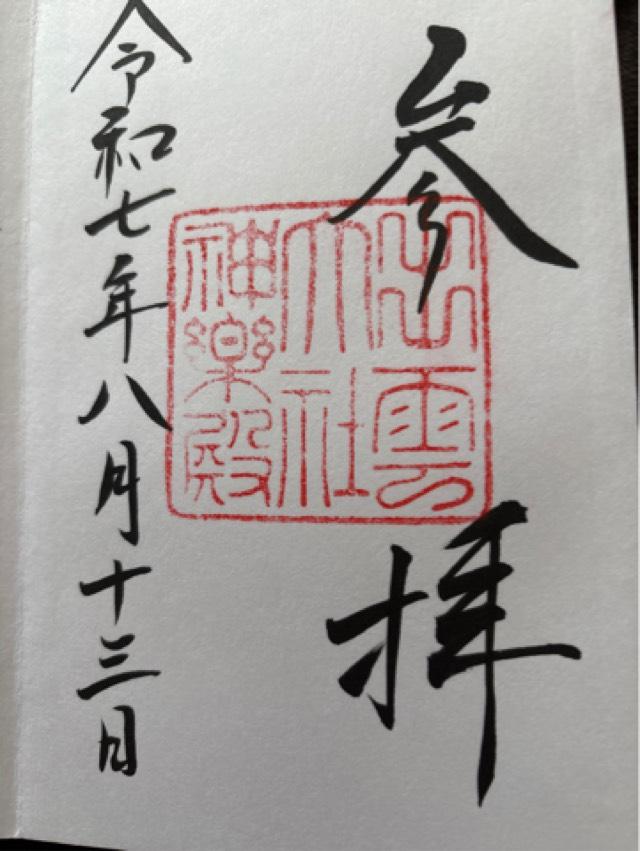 参拝
出雲
大社
神楽殿
令和七年八月十三日